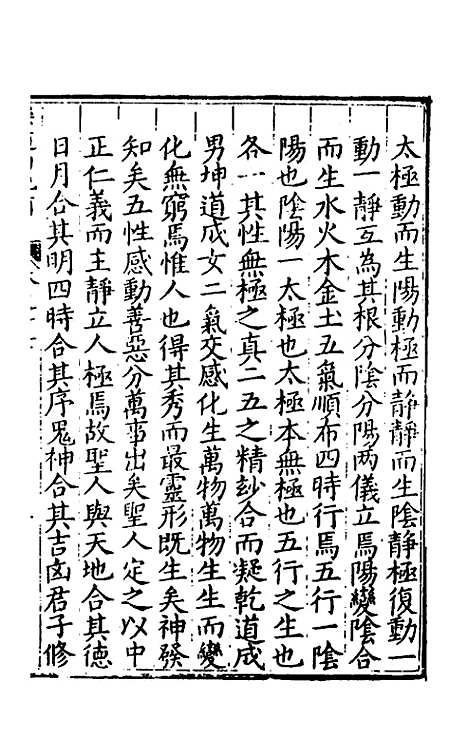 太極動而生陽動極而靜靜而生陰靜極復動一
動一靜互為其根分陰分陽兩儀立焉陽變陰合
而生水火木金土五氣順布四時行焉五行一陰
陽也陰陽一太極也太極本無極也五行之生也
各一其性無極之真二五之精妙合而凝乾道成
男坤道成女二氣交感化生萬物萬物生生而變
化無窮焉惟人也得其秀而最靈形既生矣神發
知矣五性感動善惡分萬事出矣聖人定之以中
正仁義而主靜立人極焉故聖人與天地合其德
日月合其明四時合其序鬼神合其吉凶君子修